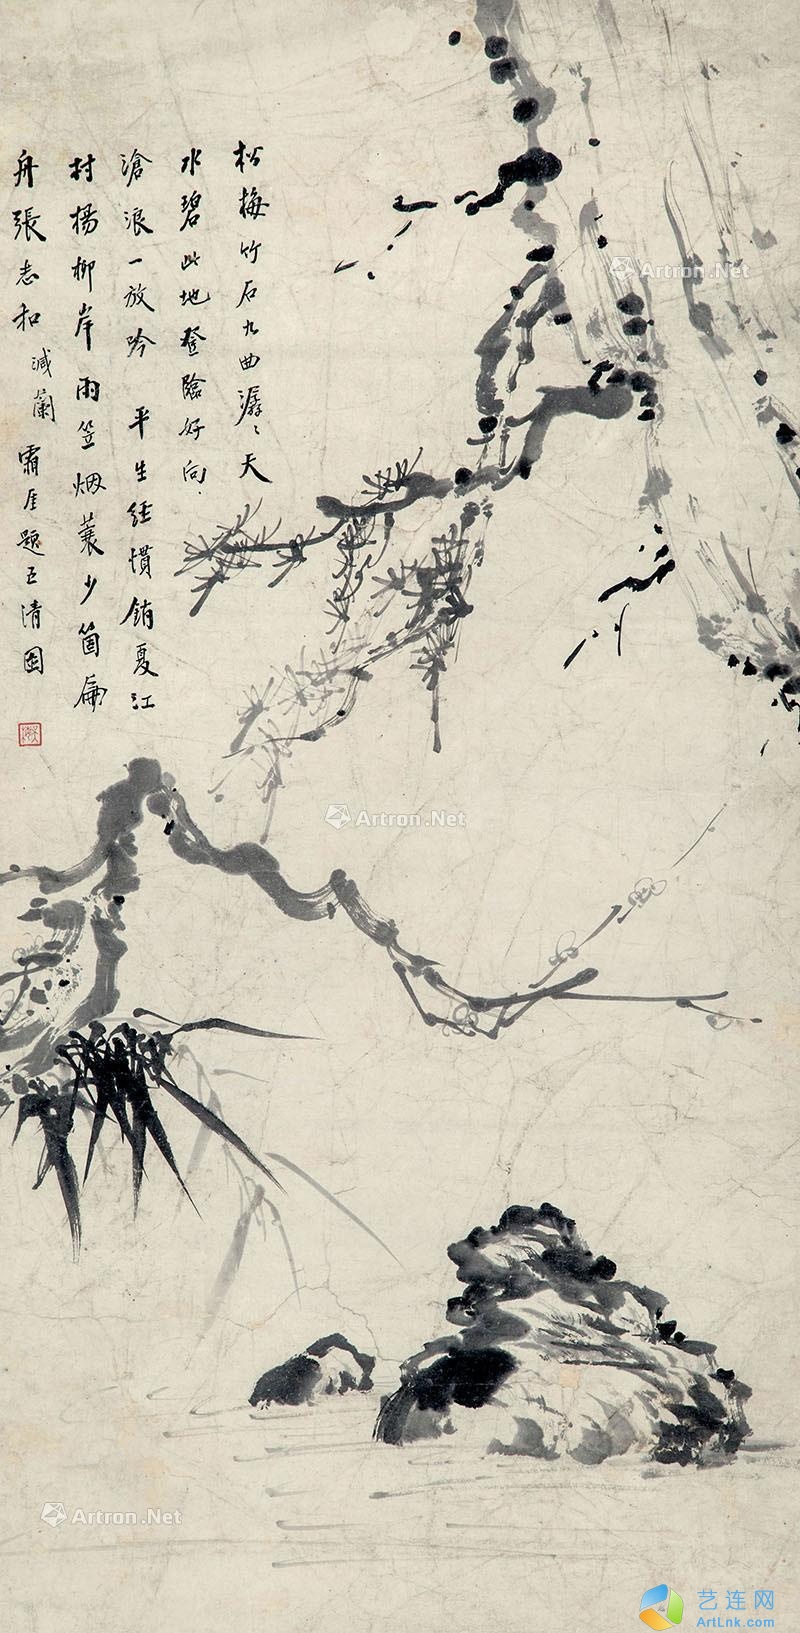 松梅竹石九曲潺〻天
水碧此地登臨好向
滄浪一放吟 平生經慣銷夏江
村楊柳岸雨笠烟蓑少箇扁
舟張志和 減蘭 霜厓題五清圖
Artron.Net
Artron.Net
Artron.Net
艺连网
ArtLnk.com